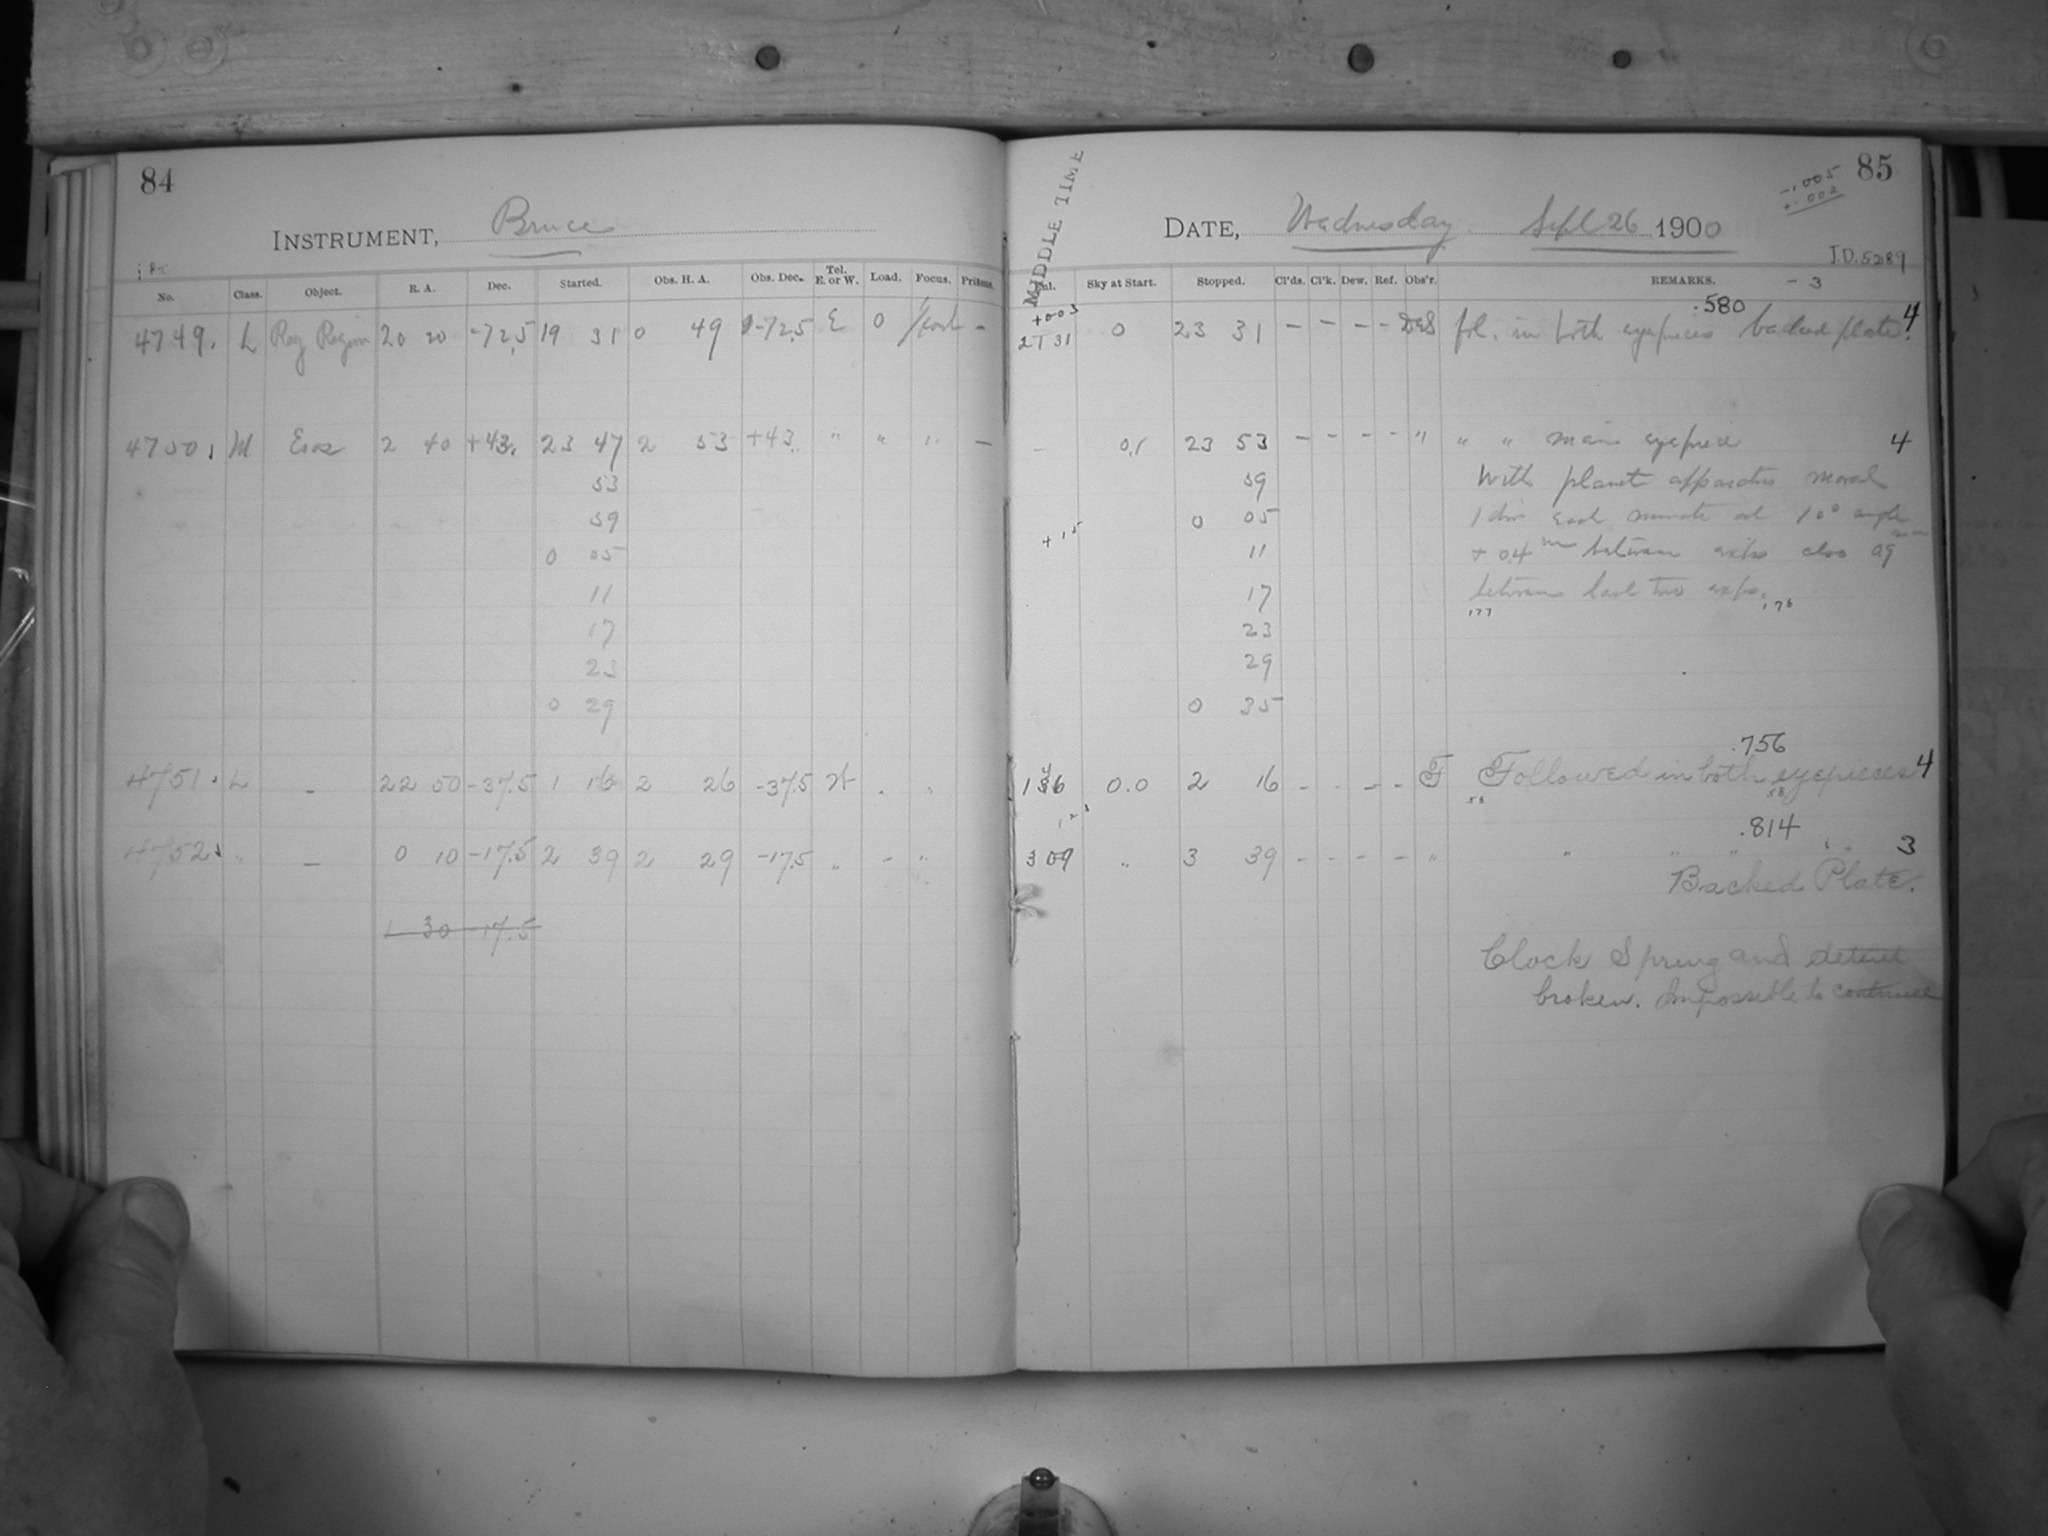 84
INSTRUMENT, Bruce
No. Class. Object. R. A. Dec. Started. Obs. H. A. Obs. Dec. Tel. E. or W. Load. Focus. Prisms.
4749. L Reg Region 20 20 -72.5 19 31 0 49 -72.5 E 0 -
4750. M Eros 2 40 +43. 23 47 2 53 +43. " " " -
53
59
0 05
11
17
23
0 29
4751. L - 22 50 -37.5 1 16 2 26 -37.5 W . "
4752. " - 0 10 -17.5 2 39 2 29 -17.5 " - "
1 30 -17.5
85
-.005
+.002
MIDDLE TIME
DATE, Wednesday Sept 26 1900
J.D. 5289
Sky at Start. Stopped. Cl'ds. Cl'k. Dew. Ref. Obs'r. REMARKS. - 3
+003 .580
21 31 0 23 31 - - - - fol. in both eyepieces backed plate. 4
- 0.1 23 53 - - - - " " " main eyepiece 4
59 With planet apparatus moved
0 05 1 div each minute at 10° angle
+15
11 + 04 between exps also 09
17 between last two exps.
177 176
23
29
0 35
.756
1 46 0.0 2 16 - - - - F Followed in both eyepieces 4
58 58
123 .814
3 09 " 3 39 - - - - " " " " " 3
Backed Plate.
Clock Spring and detent
broken. Impossible to continue